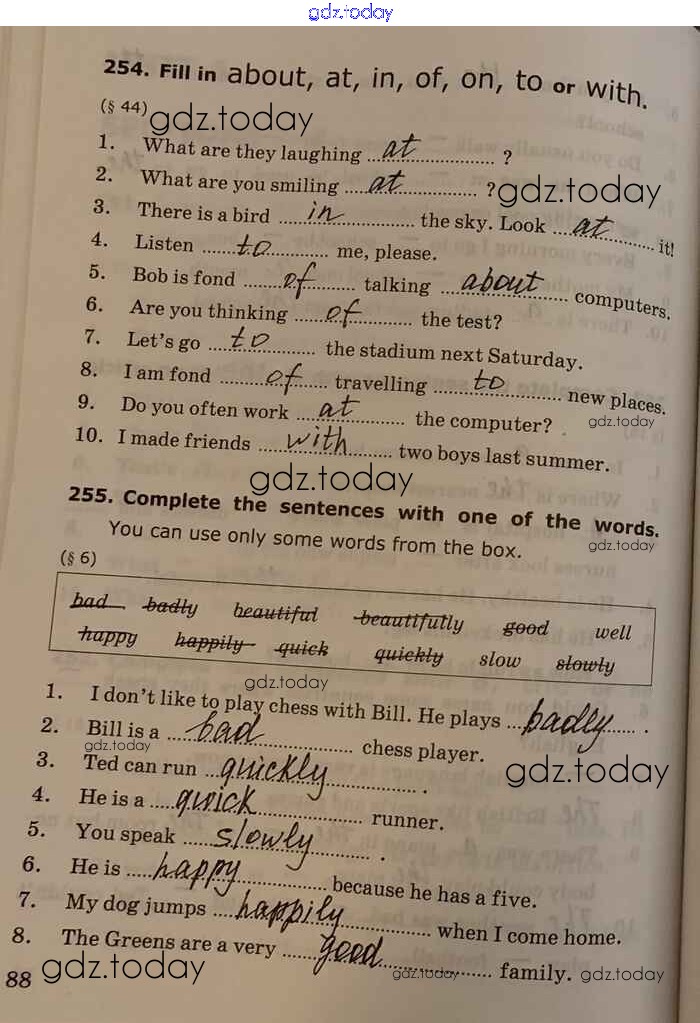 gdz.today
254. Fill in about, at, in, of, on, to or with.
(§ 44) gdz.today
1. What are they laughing ...at... ?
2. What are you smiling ...at... ? gdz.today
3. There is a bird ...in... the sky. Look ...at... it!
4. Listen ...to... me, please.
5. Bob is fond ...of... talking ...about... computers.
6. Are you thinking ...of... the test?
7. Let's go ...to... the stadium next Saturday.
8. I am fond ...of... travelling ...to... new places.
9. Do you often work ...at... the computer? gdz.today
10. I made friends ...with... two boys last summer.
gdz.today
255. Complete the sentences with one of the words.
You can use only some words from the box. gdz.today
(§ 6)
bad badly beautiful beautifully good well
happy happily quick quickly slow slowly
gdz.today
1. I don't like to play chess with Bill. He plays ...badly... .
2. Bill is a ...bad... chess player.
gdz.today
3. Ted can run ...quickly... . gdz.today
4. He is a ...quick... runner.
5. You speak ...slowly... .
6. He is ...happy... because he has a five.
7. My dog jumps ...happily... when I come home.
8. The Greens are a very ...good... family.
88 gdz.today gdz.today gdz.today